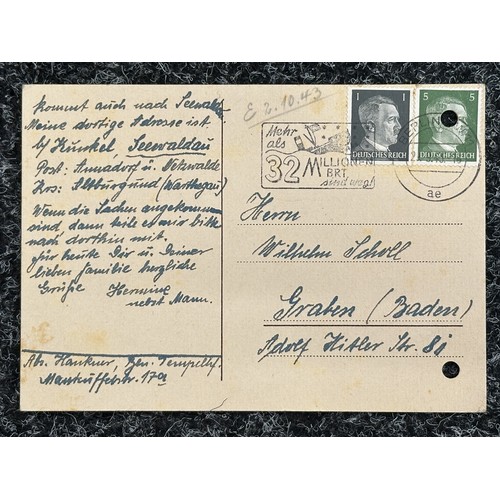 kommt auch nach Seewald
Meine dortige Adresse ist:
b/ Kunkel Seewaldau
Post: Annadorf ü. Netzwalde
Krs: Altburgund (Warthegau)
Wenn die Sachen angekommen
sind, dann teile es mir bitte
nach dorthin mit.
für heute Dir u. Deiner
lieben Familie herzliche
Grüße Hermine
nebst Mann.
Abs. Hankner, Bln. Tempelhf.
Manteuffelstr. 17a
E 2.10.43
Mehr
als
32 MILLIONEN
BRT
sind weg!
1
DEUTSCHES REICH
5 5
DEUTSCHES REICH
ae
Herrn
Wilhelm Scholl
Graben (Baden)
Adolf Hitler Str. 81